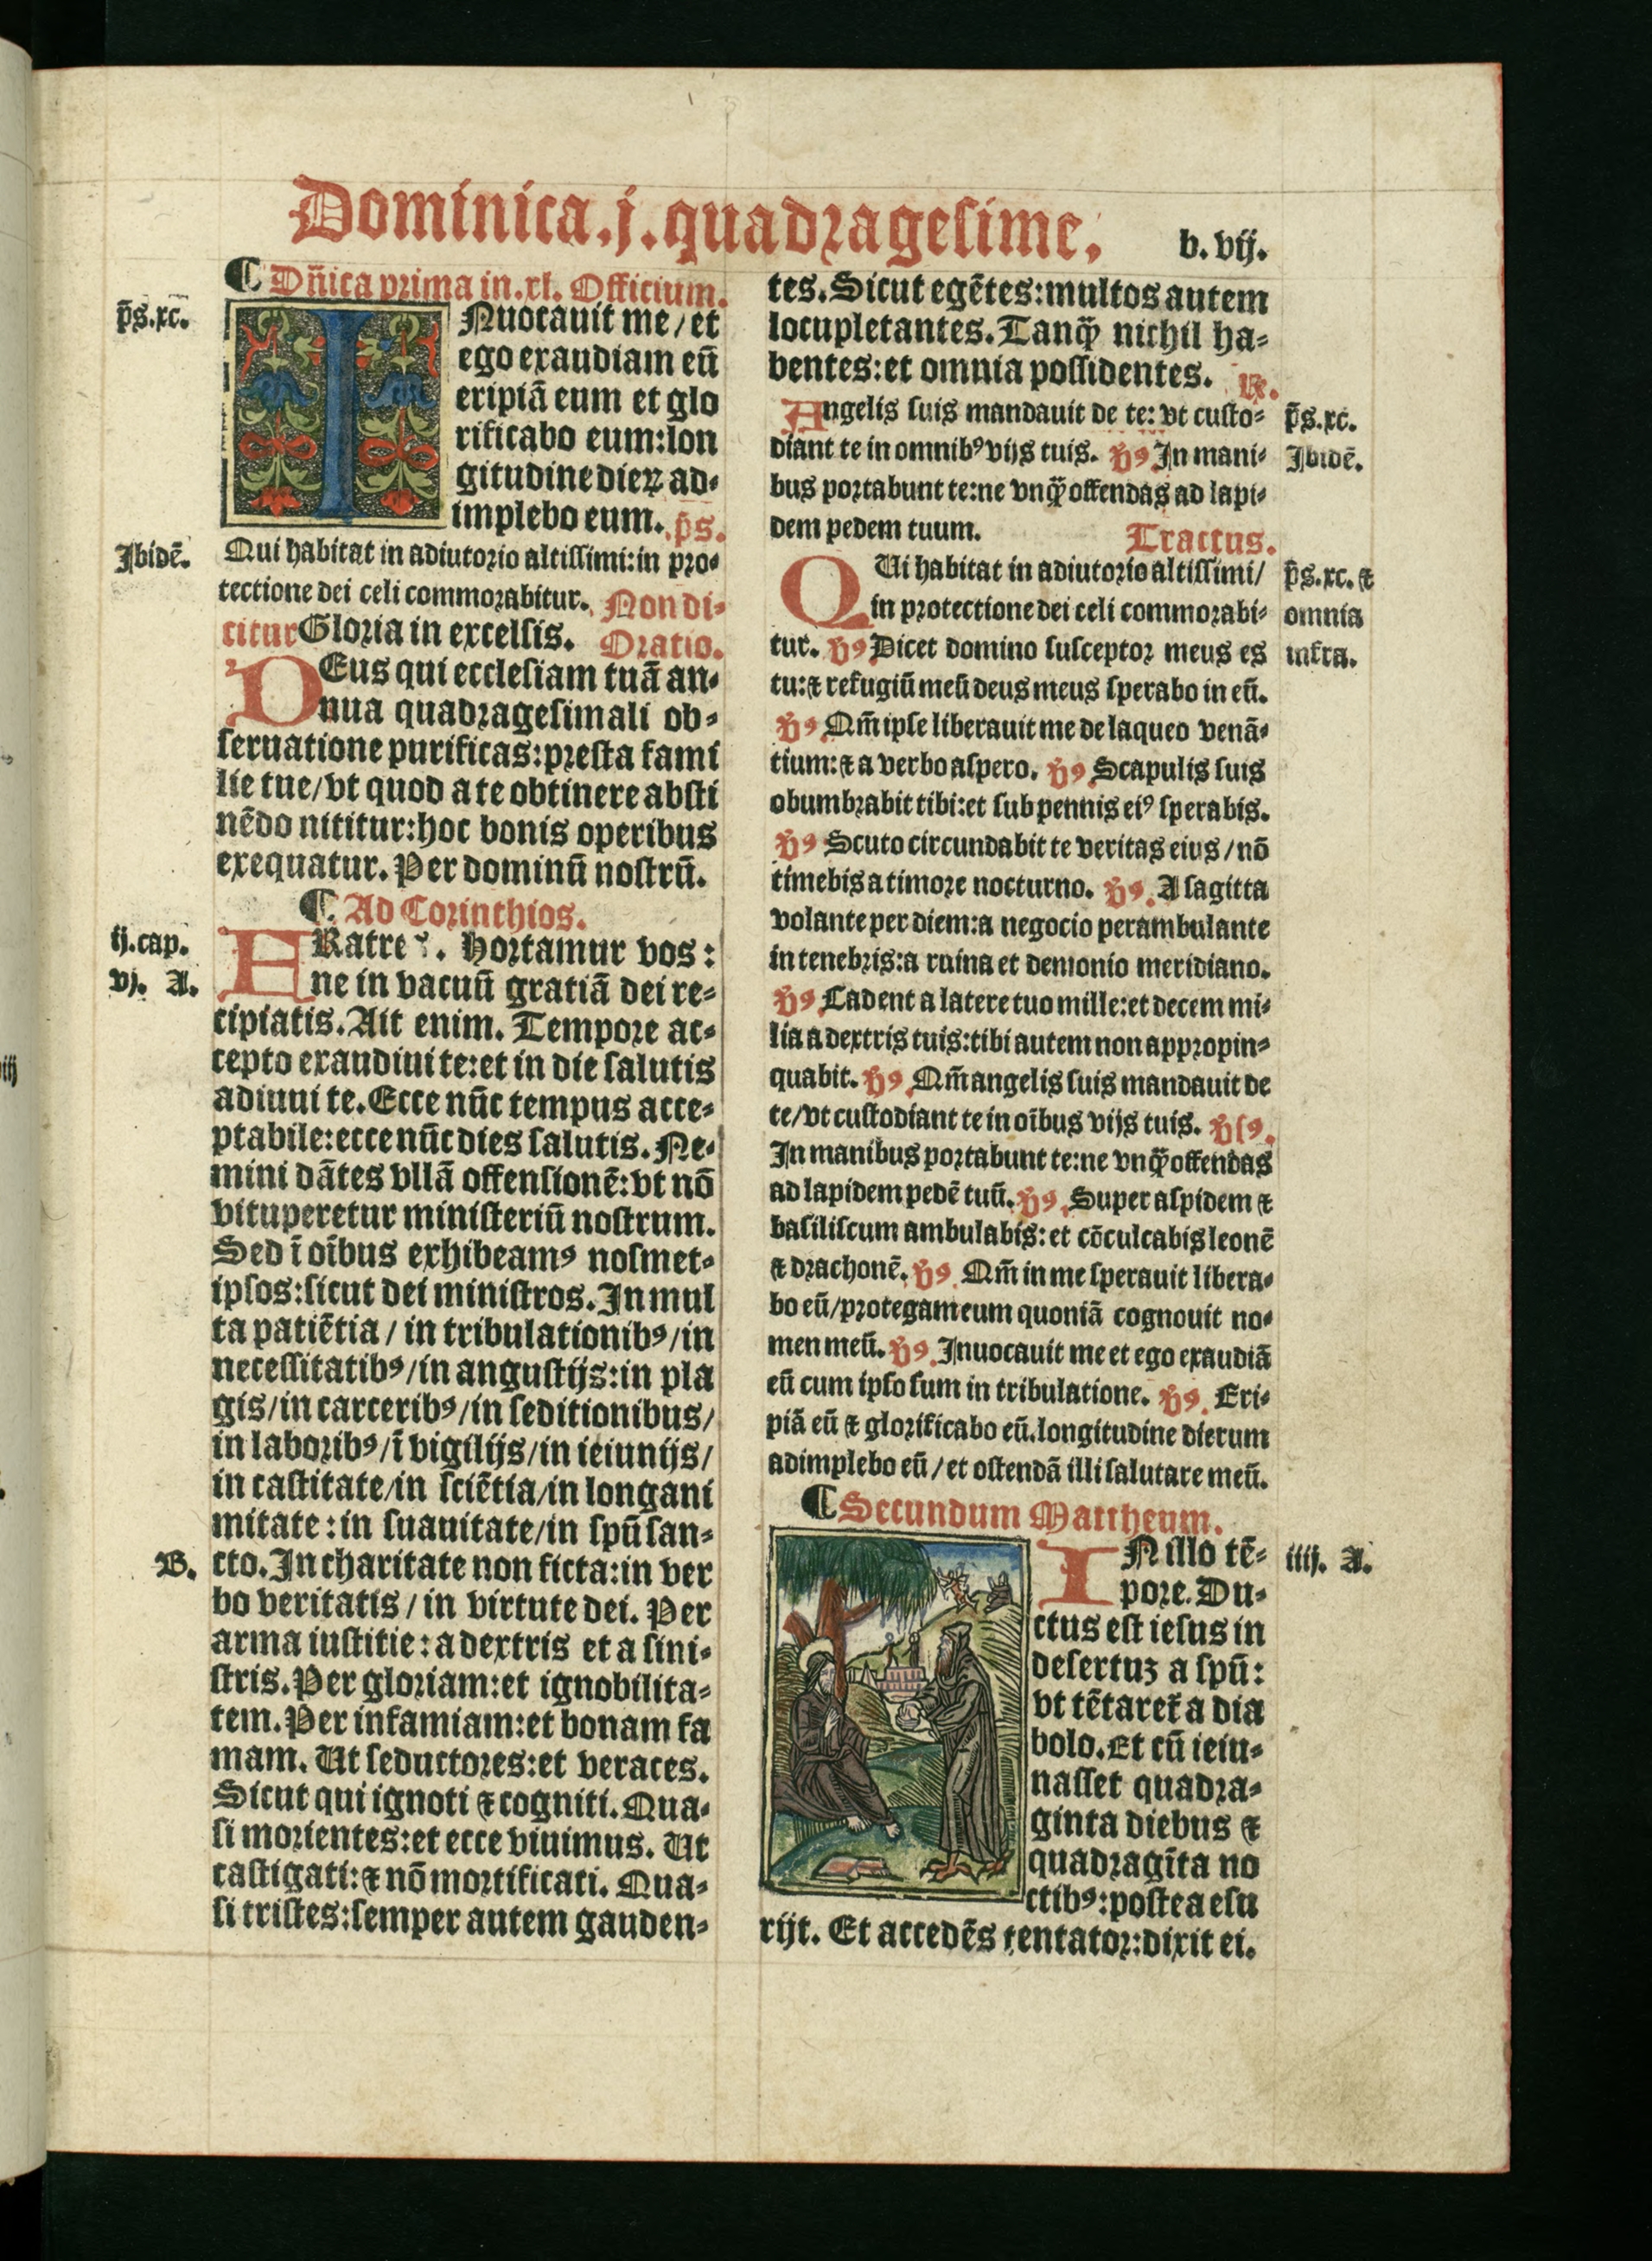 Dominica.j.quadragesime.
b.vij.
¶ Dñica prima in.xl. Officium.
p̄s.xc.
INuocauit me/et
ego exaudiam eū
eripiā eum et glo
rificabo eum:lon
gitudine dieꝝ ad-
implebo eum. p̄s.
Ibidē.
Qui habitat in adiutorio altissimi:in pro-
tectione dei celi commorabitur. Non di-
citur Gloria in excelsis. Oratio.
DEus qui ecclesiam tuā an-
nua quadragesimali ob-
seruatione purificas:presta fami
lie tue/vt quod a te obtinere absti
nēdo nititur:hoc bonis operibus
exequatur. Per dominū nostrū.
¶ Ad Corinthios.
ij.cap.
vj. A.
FRatres. Hortamur vos:
ne in vacuū gratiā dei re-
cipiatis. Ait enim. Tempore ac-
cepto exaudiui te:et in die salutis
adiuui te. Ecce nūc tempus acce-
ptabile:ecce nūc dies salutis. Ne-
mini dātes vllā offensionē:vt nō
vituperetur ministeriū nostrum.
Sed ī oībus exhibeamꝰ nosmet-
ipsos:sicut dei ministros. In mul
ta patiētia/in tribulationibꝰ/in
necessitatibꝰ/in angustijs:in pla
gis/in carceribꝰ/in seditionibus/
in laboribꝰ/ī vigilijs/in ieiunijs/
in castitate/in sciētia/in longani
mitate:in suauitate/in spū san-
B.
cto. In charitate non ficta:in ver
bo veritatis/in virtute dei. Per
arma iustitie:a dextris et a sini-
stris. Per gloriam:et ignobilita-
tem. Per infamiam:et bonam fa
mam. Ut seductores:et veraces.
Sicut qui ignoti ⁊ cogniti. Qua-
si morientes:et ecce viuimus. Ut
castigati:⁊ nō mortificati. Qua-
si tristes:semper autem gauden-
tes. Sicut egētes:multos autem
locupletantes. Tanꝙ̄ nichil ha-
bentes:et omnia possidentes. ℟.
Angelis suis mandauit de te: vt custo-
p̄s.xc.
diant te in omnibꝰ vijs tuis. ℣ꝰ In mani-
Ibidē.
bus portabunt te:ne vnꝙ̄ offendas ad lapi-
dem pedem tuum. Tractus.
QUi habitat in adiutorio altissimi/
p̄s.xc. ⁊
in protectione dei celi commorabi-
omnia
tur. ℣ꝰ Dicet domino susceptor meus es
infra.
tu:⁊ refugiū meū deus meus sperabo in eū.
℣ꝰ Qm̄ ipse liberauit me de laqueo venā-
tium:⁊ a verbo aspero. ℣ꝰ Scapulis suis
obumbrabit tibi:et sub pennis eiꝰ sperabis.
℣ꝰ Scuto circundabit te veritas eius/nō
timebis a timore nocturno. ℣ꝰ. A sagitta
volante per diem:a negocio perambulante
in tenebris:a ruina et demonio meridiano.
℣ꝰ Cadent a latere tuo mille:et decem mi-
lia a dextris tuis:tibi autem non appropin-
quabit. ℣ꝰ. Qm̄ angelis suis mandauit de
te/vt custodiant te in oībus vijs tuis. ℣sꝰ.
In manibus portabunt te:ne vnꝙ̄ offendas
ad lapidem pedē tuū. ℣ꝰ. Super aspidem ⁊
basiliscum ambulabis:et cōculcabis leonē
⁊ drachonē. ℣ꝰ. Qm̄ in me sperauit libera-
bo eū/protegam eum quoniā cognouit no-
men meū. ℣ꝰ. Inuocauit me et ego exaudiā
eū cum ipso sum in tribulatione. ℣ꝰ. Eri-
piā eū ⁊ glorificabo eū.longitudine dierum
adimplebo eū/et ostendā illi salutare meū.
¶ Secundum Mattheum.
IN illo tē-
iiij. A.
pore. Du-
ctus est iesus in
desertuꝫ a spū:
vt tētaret̄ a dia
bolo. Et cū ieiu-
nasset quadra-
ginta diebus ⁊
quadragīta no
ctibꝰ:postea esu
rijt. Et accedēs tentator:dixit ei.